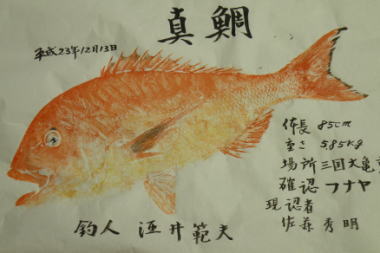 真鯛
平成23年12月13日
体長 85cm
重さ 5.85kg
場所 三国大亀
確認 フナヤ
現認者
佐藤秀明
釣人 酒井範夫